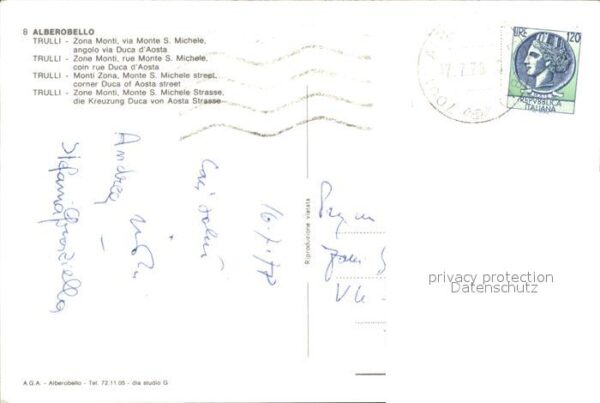 8 ALBEROBELLO
TRULLI - Zona Monti, via Monte S. Michele,
angolo via Duca d'Aosta
TRULLI - Zone Monti, rue Monte S. Michele,
coin rue Duca d'Aosta
TRULLI - Monti Zona, Monte S. Michele street,
corner Duca of Aosta street
TRULLI - Zone Monti, Monte S. Michele Strasse,
die Kreuzung Duca von Aosta Strasse
LIRE 120
REPVBBLICA
ITALIANA
16/7/78
Cari saluti
Andrea
Stefania Graziella
Riproduzione vietata
privacy protection
Datenschutz
A.G.A. - Alberobello - Tel. 72.11.05 - dia studio G